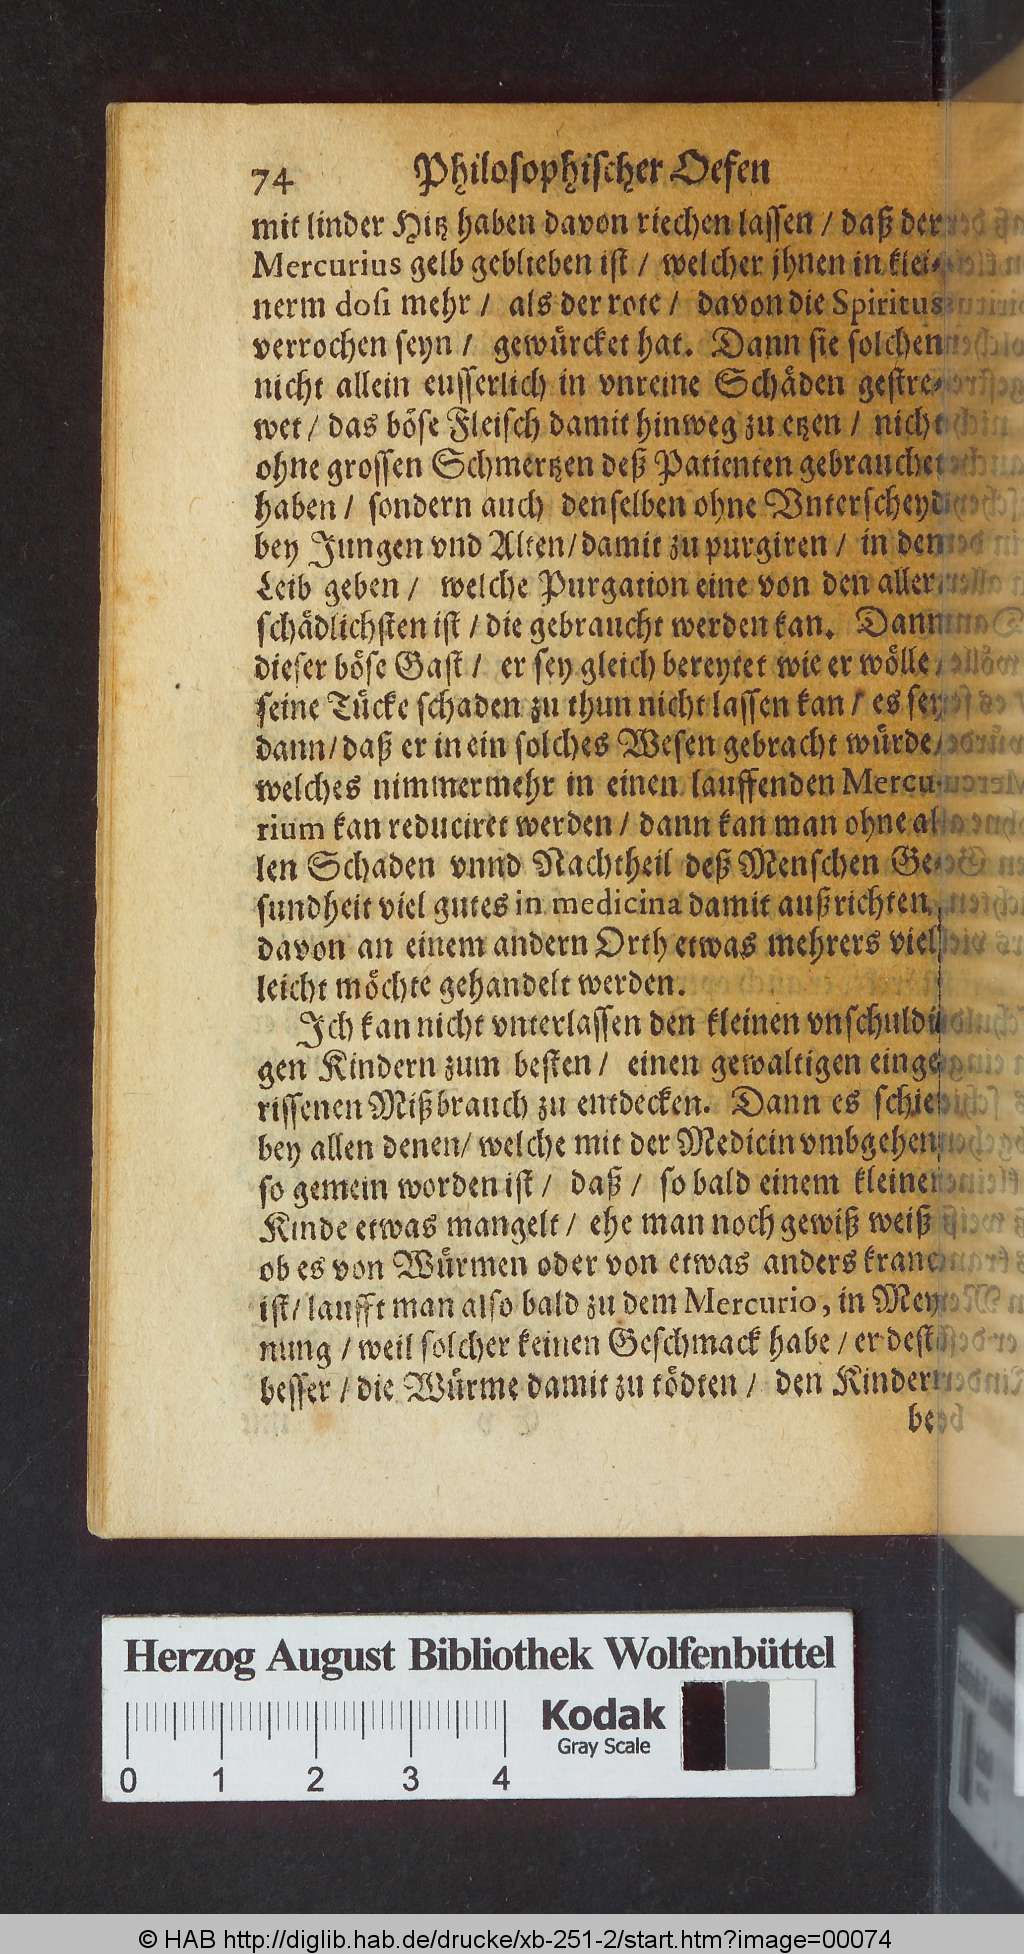 74 Philosophischer Oefen
mit linder Hitz haben davon riechen lassen / daß der
Mercurius gelb geblieben ist / welcher jhnen in klei-
nerm dosi mehr / als der rote / davon die Spiritus
verrochen seyn / gewürcket hat. Dann sie solchen
nicht allein eusserlich in vnreine Schäden gestre-
wet / das böse Fleisch damit hinweg zu etzen / nicht
ohne grossen Schmertzen deß Patienten gebrauchet
haben / sondern auch denselben ohne Vnterscheyd
bey Jungen vnd Alten / damit zu purgiren / in den
Leib geben / welche Purgation eine von den aller
schädlichsten ist / die gebraucht werden kan. Dann
dieser böse Gast / er sey gleich bereytet wie er wölle /
seine Tücke schaden zu thun nicht lassen kan / es sey
dann / daß er in ein solches Wesen gebracht würde /
welches nimmermehr in einen lauffenden Mercu-
rium kan reduciret werden / dann kan man ohne al-
len Schaden vnnd Nachtheil deß Menschen Ge-
sundheit viel gutes in medicina damit außrichten /
davon an einem andern Orth etwas mehrers viel
leicht möchte gehandelt werden.
Ich kan nicht vnterlassen den kleinen vnschuldi
gen Kindern zum besten / einen gewaltigen einge
rissenen Mißbrauch zu entdecken. Dann es schier
bey allen denen / welche mit der Medicin vmbgehen
so gemein worden ist / daß / so bald einem kleinen
Kinde etwas mangelt / ehe man noch gewiß weiß
ob es von Würmen oder von etwas anders kranck
ist / laufft man also bald zu dem Mercurio, in Mey
nung / weil solcher keinen Geschmack habe / er desto
besser / die Würme damit zu tödten / den Kindern
Herzog August Bibliothek Wolfenbüttel
Kodak
Gray Scale
0 1 2 3 4
© HAB http://diglib.hab.de/drucke/xb-251-2/start.htm?image=00074